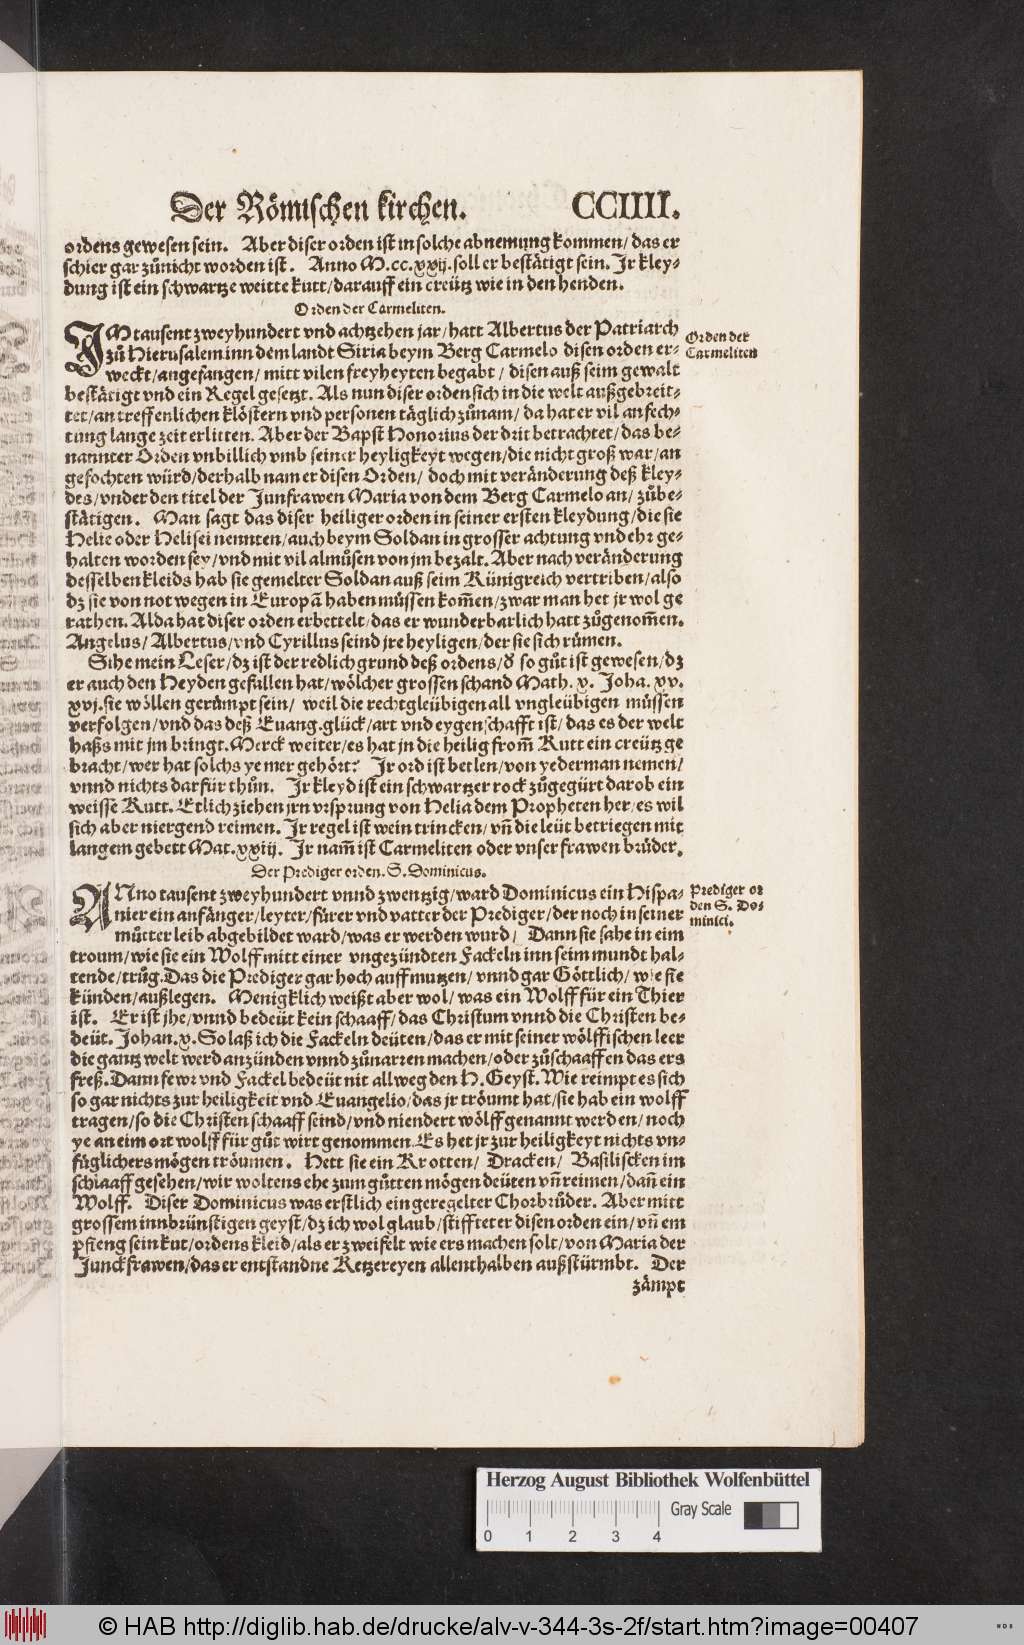 Der Römischen kirchen. CCIIII.
ordens gewesen sein. Aber diser orden ist in solche abnemung kommen/ das er
schier gar zůnicht worden ist. Anno M.cc.xxij. soll er bestätigt sein. Jr kley-
dung ist ein schwartze weitte kutt/ darauff ein creütz wie in den henden.
Orden der Carmeliten.
JM tausent zweyhundert vnd achtzehen jar/ hatt Albertus der Patriarch
zů Hierusalem inn dem landt Siria beym Berg Carmelo disen orden er-
weckt/ angefangen/ mitt vilen freyheyten begabt/ disen auß seim gewalt
bestätigt vnd ein Regel gesetzt. Als nun diser orden sich in die welt außgebreit-
tet/ an treffenlichen klöstern vnd personen täglich zůnam/ da hat er vil anfech-
tung lange zeit erlitten. Aber der Bapst Honorius der drit betrachtet/ das be-
nannter Orden vnbillich vmb seiner heyligkeyt wegen/ die nicht groß war/ an
gefochten würd/ derhalb nam er disen Orden/ doch mit veränderung deß kley-
des/ vnder den titel der Junfrawen Maria von dem Berg Carmelo an/ zůbe-
stätigen. Man sagt das diser heiliger orden in seiner ersten kleydung/ die sie
Helie oder Helisei nennten/ auch beym Soldan in grosser achtung vnd ehr ge-
halten worden sey/ vnd mit vil almůsen von jm bezalt. Aber nach veränderung
desselben kleids hab sie gemelter Soldan auß seim Künigreich vertriben/ also
dz sie von not wegen in Europā haben můssen kom̄en/ zwar man het jr wol ge
rathen. Alda hat diser orden erbettelt/ das er wunderbarlich hatt zůgenom̄en.
Angelus/ Albertus/ vnd Cyrillus seind jre heyligen/ der sie sich růmen.
Sihe mein Leser/ dz ist der redlich grund deß ordens/ d' so gůt ist gewesen/ dz
er auch den Heyden gefallen hat/ wölcher grossen schand Math. v. Joha. xv.
xvj. sie wöllen gerůmpt sein/ weil die rechtgleübigen all vngleübigen můssen
verfolgen/ vnd das deß Euang. glück/ art vnd eygenschafft ist/ das es der welt
haß mit jm bringt. Merck weiter/ es hat jn die heilig from̄ Kutt ein creütz ge
bracht/ wer hat solchs ye mer gehört? Jr ord ist betlen/ von yederman nemen/
vnnd nichts darfür thůn. Jr kleyd ist ein schwartzer rock zůgegürt darob ein
weisse Kutt. Etlich ziehen jrn vrsprung von Helia dem Propheten her/ es wil
sich aber niergend reimen. Jr regel ist wein trincken/ vn̄ die leüt betriegen mit
langem gebett Mat. xxiij. Jr nam̄ ist Carmeliten oder vnser frawen brůder.
Orden der
Carmeliten
Der Prediger orden. S. Dominicus.
ANno tausent zweyhundert vnnd zwentzig/ ward Dominicus ein Hispa-
nier ein anfänger/ leyter/ fůrer vnd vatter der Prediger/ der noch in seiner
můtter leib abgebildet ward/ was er werden wurd/ Dann sie sahe in eim
troum/ wie sie ein Wolff mitt einer vngezündten Fackeln inn seim mundt hal-
tende/ trůg. Das die Prediger gar hoch auffmutzen/ vnnd gar Göttlich/ wie sie
künden/ außlegen. Menigklich weißt aber wol/ was ein Wolff für ein Thier
ist. Er ist jhe/ vnnd bedeüt kein schaaff/ das Christum vnnd die Christen be-
deüt. Johan. x. So laß ich die Fackeln deüten/ das er mit seiner wölffischen leer
die gantz welt werd anzünden vnnd zůnarren machen/ oder zůschaaffen das ers
freß. Dann fewr vnd Fackel bedeüt nit allweg den H. Geyst. Wie reimpt es sich
so gar nichts zur heiligkeit vnd Euangelio/ das jr tröumt hat/ sie hab ein wolff
tragen/ so die Christen schaaff seind/ vnd niendert wölff genannt werden/ noch
ye an eim ort wolff für gůt wirt genommen. Es het jr zur heiligkeyt nichts vn-
füglichers mögen tröumen. Hett sie ein Krotten/ Dracken/ Basiliscken im
schlaaff gesehen/ wir woltens ehe zum gůtten mögen deüten vn̄ reimen/ dan̄ ein
Wolff. Diser Dominicus was erstlich ein geregelter Chorbrůder. Aber mitt
grossem innbrünstigen geyst/ dz ich wol glaub/ stifftet er disen orden ein/ vn̄ em
pfieng sein kut/ ordens kleid/ als er zweifelt wie ers machen solt/ von Maria der
Junckfrawen/ das er entstandne Ketzereyen allenthalben außstürmbt. Der
zämpt
Prediger or
den S. Do-
minici.
Herzog August Bibliothek Wolfenbüttel
Gray Scale
0 1 2 3 4
© HAB http://diglib.hab.de/drucke/alv-v-344-3s-2f/start.htm?image=00407